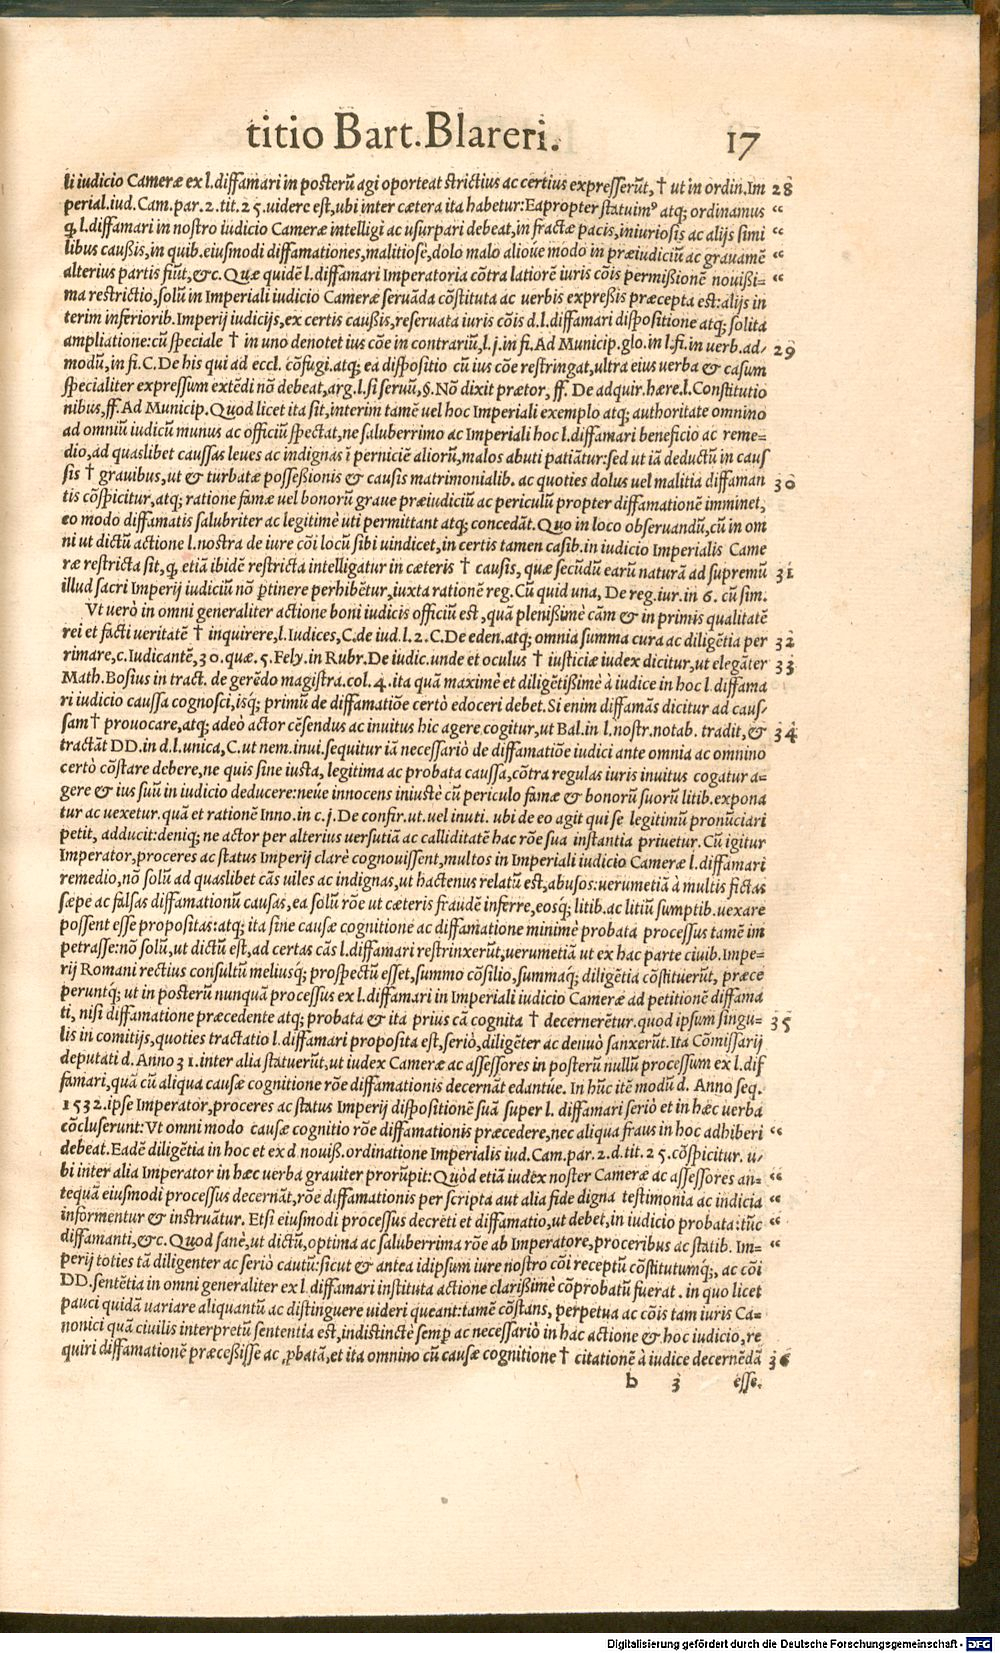 titio Bart. Blareri. 17
li iudicio Cameræ ex l.diffamari in posterũ agi oporteat strictius ac certius expresserũt, † ut in ordin.Im 28
perial.iud.Cam.par.2.tit.25.uidere est,ubi inter cætera ita habetur:Eapropter statuimꝰ atq; ordinamus “
q̃, l.diffamari in nostro iudicio Cameræ intelligi ac usurpari debeat,in fractæ pacis,iniuriosis ac alijs simi “
libus caußis,in quib.eiusmodi diffamationes,malitiosè,dolo malo alioue modo in præiudiciũ ac grauamẽ “
alterius partis fiũt,&c.Quæ quidẽ l.diffamari Imperatoria cõtra latiorẽ iuris cõis permißionẽ nouißi= “
ma restrictio,solũ in Imperiali iudicio Cameræ seruãda cõstituta ac uerbis expreßis præcepta est:alijs in
terim inferiorib.Imperij iudicijs,ex certis caußis,reseruata iuris cõis d.l.diffamari dispositione atq; solita
ampliatione:cũ speciale † in uno denotet ius cõe in contrariũ,l.j.in fi.Ad Municip.glo.in l.fi.in uerb.ad- 29
modũ,in fi.C.De his qui ad eccl. cõfugi.atq; ea dispositio cũ ius cõe restringat,ultra eius uerba & casum
specialiter expressum extẽdi nõ debeat,arg.l.si seruũ,§.Nõ dixit prætor, ff. De adquir.hære.l.Constitutio
nibus,ff.Ad Municip.Quod licet ita sit,interim tamẽ uel hoc Imperiali exemplo atq; authoritate omnino
ad omniũ iudicũ munus ac officiũ spectat,ne saluberrimo ac Imperiali hoc l.diffamari beneficio ac reme=
dio,ad quaslibet caussas leues ac indignas ĩ perniciẽ aliorũ,malos abuti patiãtur:sed ut iã deductũ in caus
sis † grauibus,ut & turbatæ posseßionis & causis matrimonialib. ac quoties dolus uel malitia diffaman 30
tis cõspicitur,atq; ratione famæ uel bonorũ graue præiudiciũ ac periculũ propter diffamationẽ imminet,
eo modo diffamatis salubriter ac legitimè uti permittant atq; concedãt.Quo in loco obseruandũ,cũ in om
ni ut dictũ actione l.nostra de iure cõi locũ sibi uindicet,in certis tamen casib.in iudicio Imperialis Came
ræ restricta sit,q̃, etiã ibidẽ restricta intelligatur in cæteris † causis, quæ secũdũ earũ naturã ad supremũ 31
illud sacri Imperij iudiciũ nõ ꝑtinere perhibẽtur,iuxta rationẽ reg.Cũ quid una, De reg.iur.in 6. cũ sim.
Vt uerò in omni generaliter actione boni iudicis officiũ est ,quã plenißimè cãm & in primis qualitatẽ
rei et facti ueritatẽ † inquirere,l.Iudices,C.de iud.l.2.C.De eden.atq; omnia summa cura ac diligẽtia per 32
rimare,c.Iudicantẽ,30.quæ.5.Fely.in Rubr.De iudic.unde et oculus † iusticiæ iudex dicitur,ut elegãter 33
Math.Bosius in tract. de gerẽdo magistra.col.4.ita quã maximè et diligẽtißimè à iudice in hoc l.diffama
ri iudicio caussa cognosci,isq́; primũ de diffamatiõe certò edoceri debet.Si enim diffamãs dicitur ad caus/
sam † prouocare,atq; adeò actor cẽsendus ac inuitus hic agere cogitur,ut Bal.in l.nostr.notab. tradit,& 34
tractãt DD.in d.l.unica,C.ut nem.inui.sequitur iã necessariò de diffamatiõe iudici ante omnia ac omnino
certò cõstare debere,ne quis sine iusta, legitima ac probata caussa,cõtra regulas iuris inuitus cogatur a=
gere & ius suũ in iudicio deducere:neúe innocens iniustè cũ periculo famæ & bonorũ suorũ litib.expona
tur ac uexetur.quã et rationẽ Inno.in c.j.De confir.ut.uel inuti. ubi de eo agit qui se legitimũ pronũciari
petit, adducit:deniq; ne actor per alterius uersutiã ac calliditatẽ hac rõe sua instantia priuetur.Cũ igitur
Imperator,proceres ac status Imperij clarè cognouissent,multos in Imperiali iudicio Cameræ l.diffamari
remedio,nõ solũ ad quaslibet cãs uiles ac indignas,ut hactenus relatũ est,abusos:uerumetiã à multis fictas
sæpe ac falsas diffamationũ causas,ea solũ rõe ut cæteris fraudẽ inferre,eosq́; litib.ac litiũ sumptib.uexare
possent esse propositas:atq; ita sine causæ cognitione ac diffamatione minimè probata processus tamẽ im
petrasse:nõ solũ,ut dictũ est,ad certas cãs l.diffamari restrinxerũt,uerumetiã ut ex hac parte ciuib.Impe=
rij Romani rectius consultũ meliusq́; prospectũ esset,summo cõsilio,summaq́; diligẽtia cõstituerũt, præce
peruntq́; ut in posterũ nunquã processus ex l.diffamari in Imperiali iudicio Cameræ ad petitionẽ diffama
ti, nisi diffamatione præcedente atq; probata & ita prius cã cognita † decernerẽtur.quod ipsum singu= 35
lis in comitijs,quoties tractatio l.diffamari proposita est,seriò,diligẽter ac denuò sanxerũt.Ita Cõmissarij
deputati d. Anno 31.inter alia statuerũt,ut iudex Cameræ ac assessores in posterũ nullũ processum ex l.dif
famari,quã cũ aliqua causæ cognitione rõe diffamationis decernãt edantúe. In hũc itẽ modũ d. Anno seq.
1532.ipse Imperator,proceres ac status Imperij dispositionẽ suã super l. diffamari seriò et in hæc uerba
cõcluserunt:Vt omni modo causæ cognitio rõe diffamationis præcedere,nec aliqua fraus in hoc adhiberi “
debeat.Eadẽ diligẽtia in hoc et ex d nouiß.ordinatione Imperialis iud.Cam.par.2.d.tit.25.cõspicitur. u/
bi inter alia Imperator in hæc uerba grauiter prorũpit:Quòd etiã iudex noster Cameræ ac assessores an= “
tequã eiusmodi processus decernãt,rõe diffamationis per scripta aut alia fide digna testimonia ac indicia “
informentur & instruãtur. Etsi eiusmodi processus decreti et diffamatio,ut debet,in iudicio probata:tũc “
diffamanti,&c.Quod sanè,ut dictũ,optima ac saluberrima rõe ab Imperatore,proceribus ac statib. Im= “
perij toties tã diligenter ac seriò cautũ:sicut & antea idipsum iure nostro cõi receptũ cõstitutumq́;, ac cõi
DD.sentẽtia in omni generaliter ex l.diffamari instituta actione clarißimè cõprobatũ fuerat . in quo licet
pauci quidã uariare aliquantũ ac distinguere uideri queant:tamẽ cõstans, perpetua ac cõis tam iuris Ca=
nonici quã ciuilis interpretũ sententia est,indistinctè semꝑ ac necessariò in hac actione & hoc iudicio,re
quiri diffamationẽ præceßisse ac ꝓbatã,et ita omnino cũ causæ cognitione † citationẽ à iudice decernẽdã 36
b 3 esse.
Digitalisierung gefördert durch die Deutsche Forschungsgemeinschaft - DFG